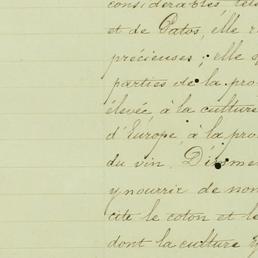 considerables, tel
et de Patos, elle r
précieuses; elle s
parties de la pro
élevée, à la culture
d'Europe, à la pro
du vin. D'imme
y nourrir de nom
cite le coton et le
dont la culture y